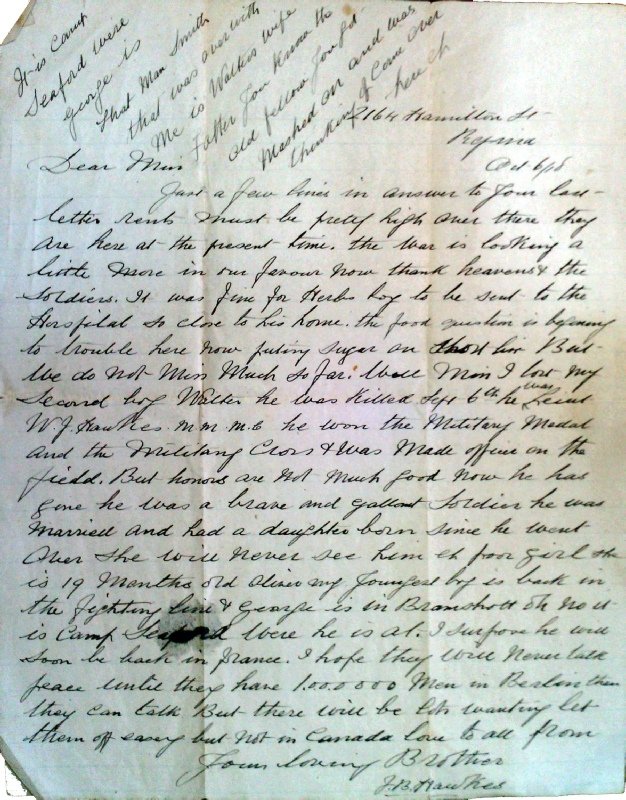 It is Camp
Seaford were
george is
that Man Smith
that was over with
Me is Walters wife
Father you know the
old fellow you got
Mashed on and was
thinking of Come over
here eh
2164 Hamilton St
Regina
Oct 6/18
Dear Min
Just a few lines in answer to your last
letter rents must be prety high over there they
are here at the present time. the war is looking a
little more in our favour now thank heavens & the
Soldiers. It was fine for Herbs boy to be sent to the
Horspital so close to his home. the food question is begening
to trouble here now puting sugar on But
We do not Miss Much so far. Well Min I lost my
Second boy Walter he was Killed Sept 6th he was Lieut
W. J. Hawkes. M.M. M.C he won the Military Medal
and the Military Cross & was Made officer on the
field. But honors are not much good now he has
gone he was a brave and gallant Soldier he was
Married and had a daughter born since he went
Over she will never see him eh poor girl she
is 19 Months old Oliver my youngest boy is back in
the fighting line & george is in Bramshott oh no it
is Camp Seaford Were he is at. I supose he will
soon be back in france. I hope they will never talk
peace until they have 1.000.000 Men in Berlin then
they can talk But there will be lots wanting let
them off easey but not in Canada love to all from
Your loving Brother
J. B. Hawkes